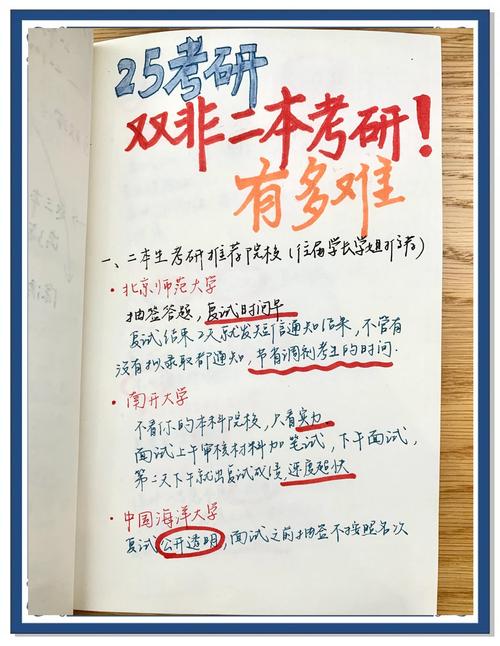 25考研
双非二本考研!
有多难
一、二本生考研推荐院校(往届学长学姐推荐)
·北京师范大学
抽签答题,复试时间早
复试结束2天就发短信通知结果,不管有
没有拟录取都通知,节省调剂考生的时间.
·南开大学
不看你的本科院校,只看实力
面试上午审核材料加笔试,下午面试,
第二天下午就出复试成绩,速度超快
·中国海洋大学
复试公开透明,面试之前抽签不按照名次